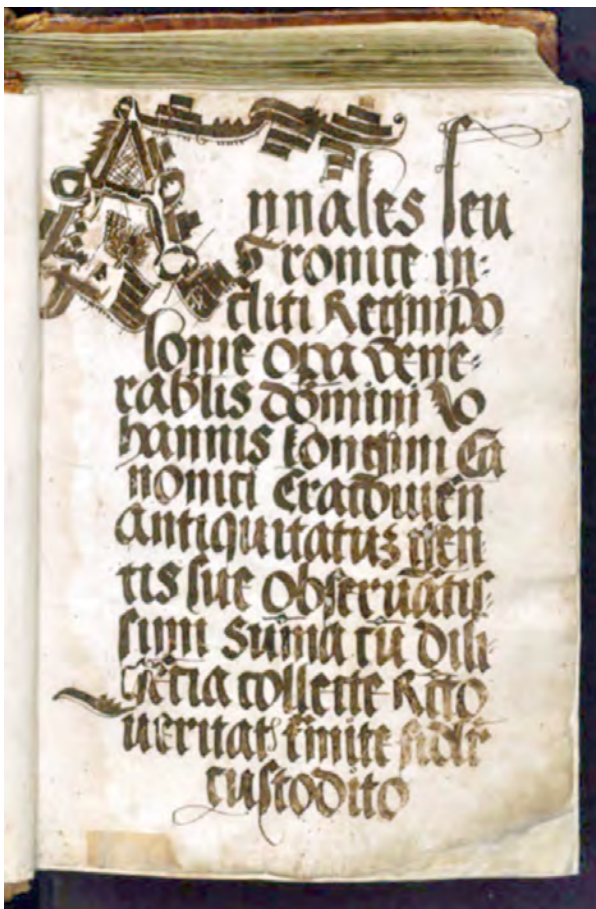 Annales seu
Cronice in:
cliti Regni Po
lonie opa vene:
rabilis domini Io
hannis Longini Ca
nonici Cracovien
antiquitatis gen
tis sue Observatis
simi Suma cu dili
gecia collecte
veritat
custodito